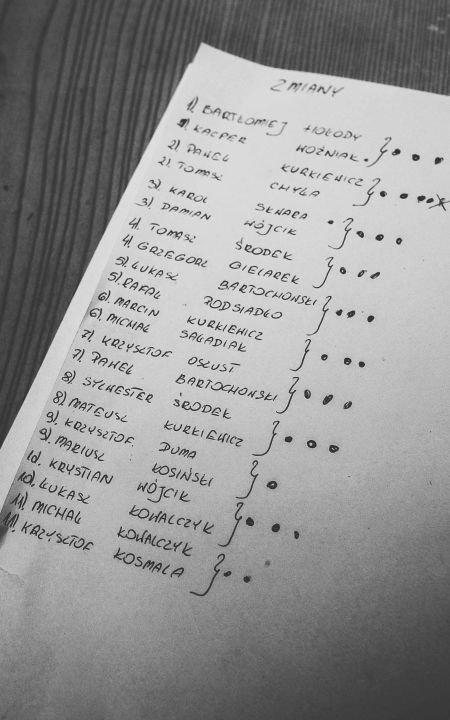 ZMIANY
1). BARTŁOMIEJ HOŁODY
1). KACPER WOŹNIAK
2). PAWEŁ KURKIEWICZ
2). TOMASZ CHYŁA
3). KAROL SKWARA
3). DAMIAN WÓJCIK
4). TOMASZ ŚRODEK
4). GRZEGORZ GIELAREK
5). ŁUKASZ BARTOCHOWSKI
5). RAFAŁ PODSIADŁO
6). MARCIN KURKIEWICZ
6). MICHAŁ SAGADIAK
7). KRZYSZTOF OSŁUST
7). PAWEŁ BARTOCHOWSKI
8). SYLWESTER ŚRODEK
8). MATEUSZ KURKIEWICZ
9). KRZYSZTOF DUMA
9). MARIUSZ ŁOSIŃSKI
10). KRYSTIAN WÓJCIK
10). ŁUKASZ KOWALCZYK
11). MICHAŁ KOWALCZYK
11). KRZYSZTOF KOSMALA